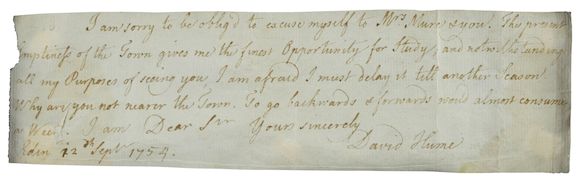 I am sorry to be oblig'd to excuse myself to Mrs Mure & you. The present
Emptiness of the Town gives me the finest Opportunity for Study; and notwithstanding
all my Purposes of seeing you, I am afraid I must delay it till another Season.
Why are you not nearer the Town. To go backwards & forwards would almost consume
a Week. I am Dear Sir Yours sincerely
Edinr 12th Septr 1754. David Hume